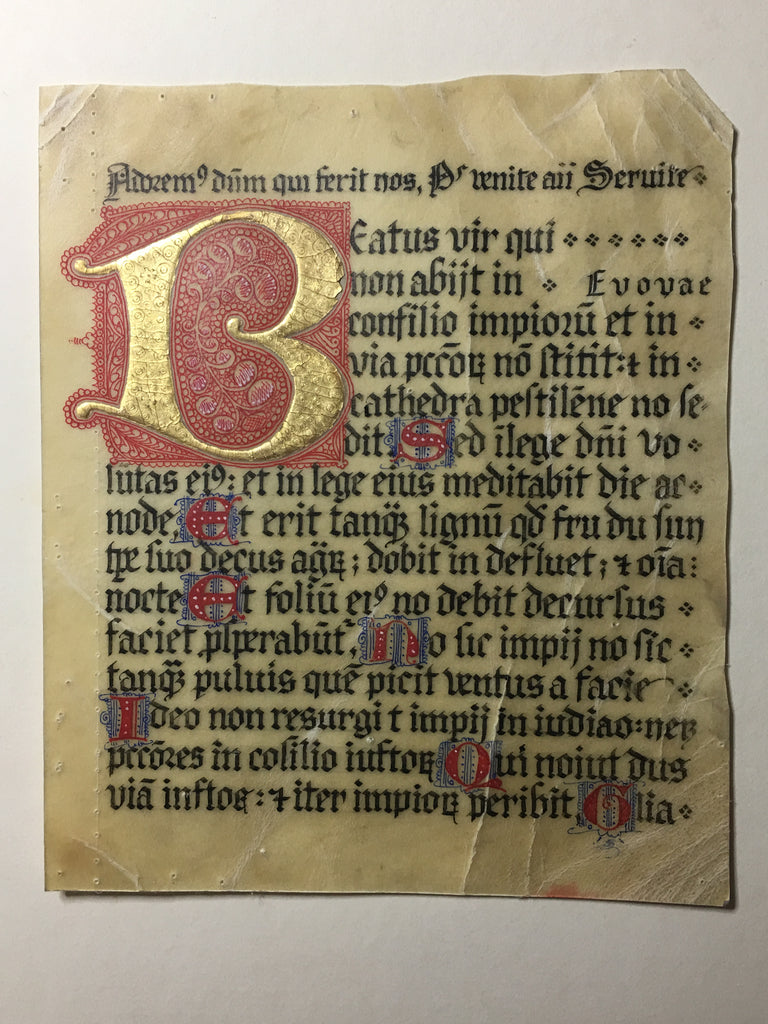 Adorem⁹ dūm qui ferit nos, Pˢ venite aii Seruite
Beatus vir qui
non abijt in Evovae
consilio impiorū et in
via pccōꝝ nō stitit: ⁊ in
cathedra pestilēne no se-
dit. Sed ī lege dn̄i vo
lūtas ei⁹: et in lege eius meditabit die ac
node, Et erit tanqꝫ lignū qd̄ fru du sun
tpe suo decus aqꝝ; dobit in defluet; ⁊ oīa:
nocte Et foliū ei⁹ no debit decursus
faciet plperabūt, No sic impij no sic
tanqꝫ puluis quē picit ventus a facie
Ideo non resurgi t impij in iudiao: neꝫ
pccōres in cosilio iustoꝝ Qui noiut dus
viā instoꝝ: ⁊ iter impioꝝ peribit, Glia